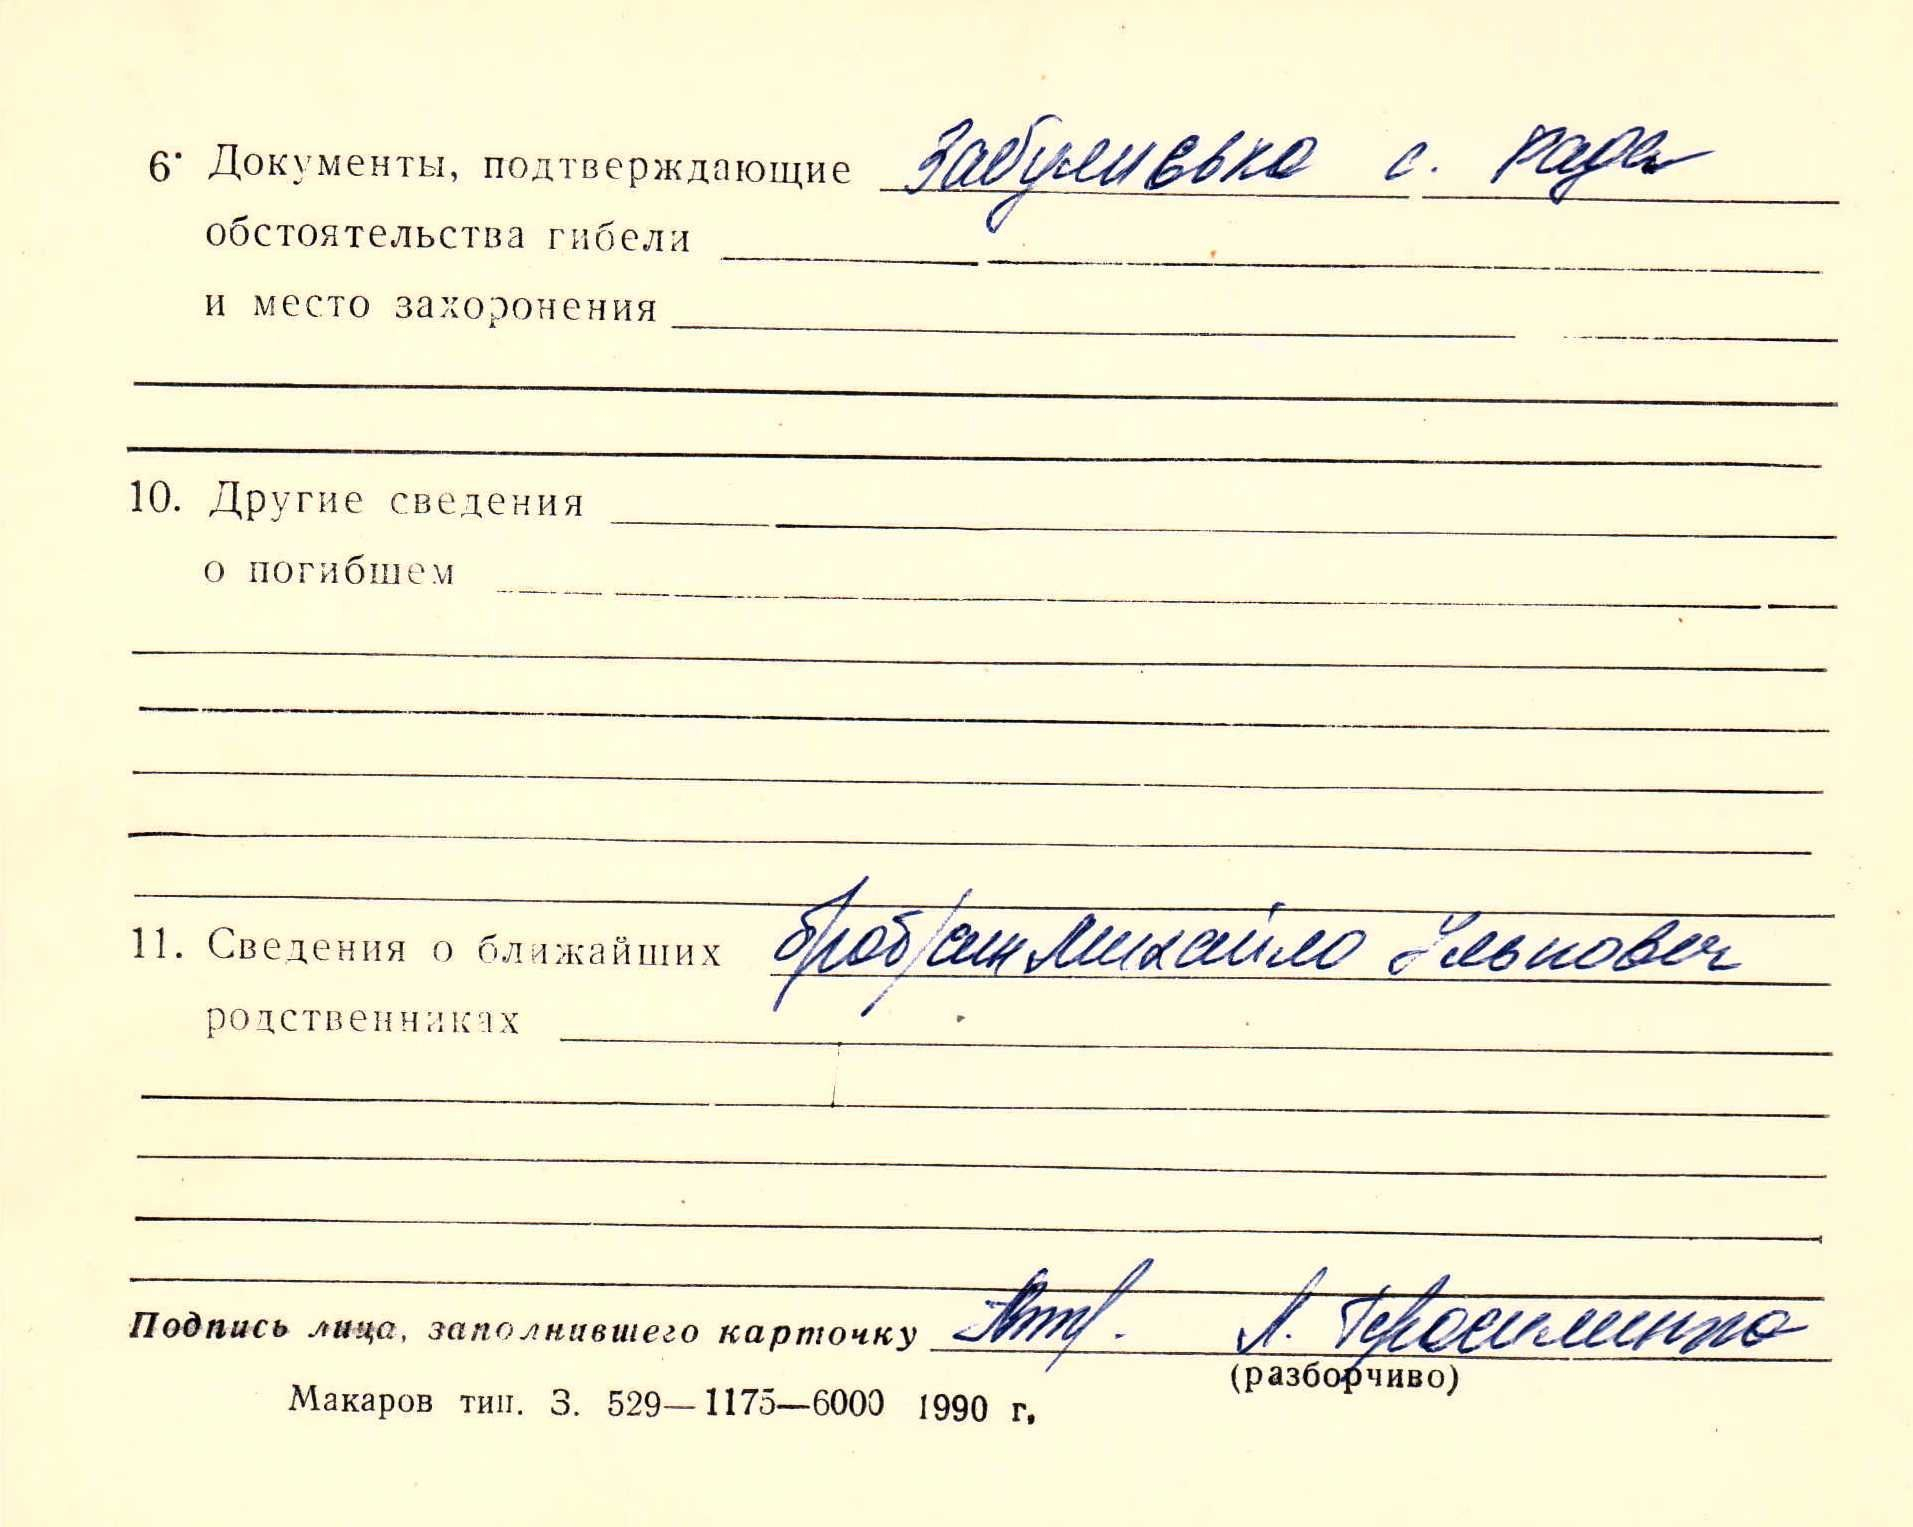 6. Документы, подтверждающие Забуянська с. рада
обстоятельства гибели
и место захоронения
10. Другие сведения
о погибшем
11. Сведения о ближайших Михайло
родственниках
Подпись лица, заполнившего карточку Л. Герасименко
(разборчиво)
Макаров тип. З. 529—1175—6000 1990 г.